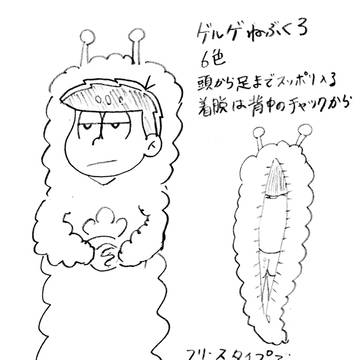 ゲルゲねぶくろ
6色
頭から足までスッポリ入る
着脱は背中のチャックから
フリースタイプで